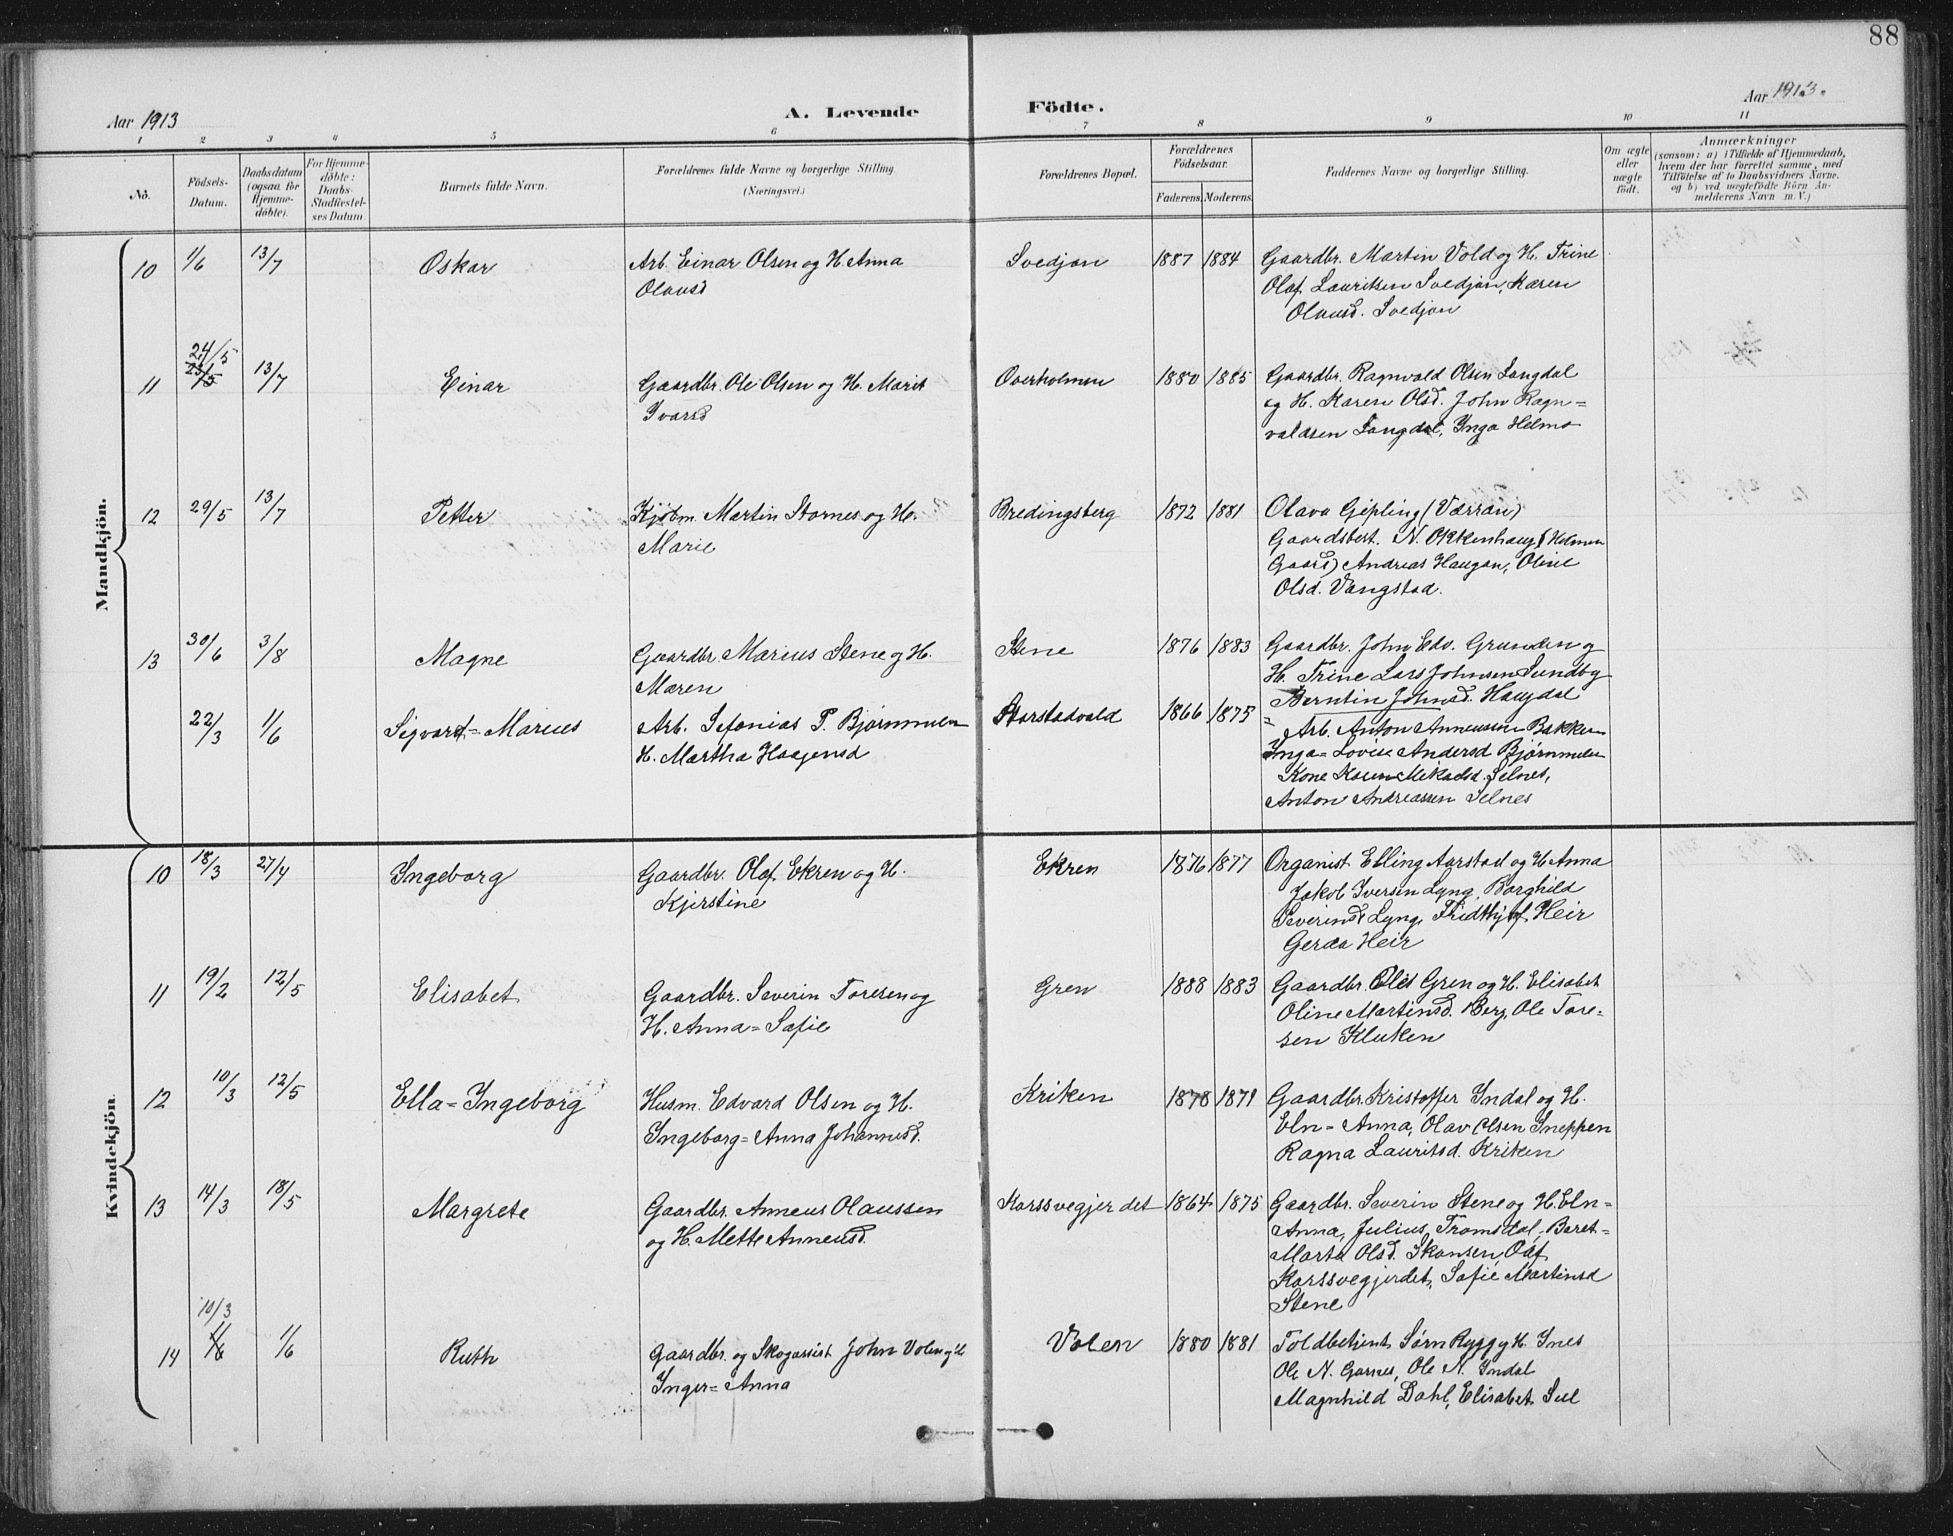 88
Aar 1913
A. Levende Födte.
Aar 1913.
1 2 3 4 5 6 7 8 9 10 11
No.
Födsels-
Datum.
Daabsdatum
(ogsaa for
Hjemme-
döbte).
For Hjemme-
döbte:
Daabs-
Stadfæstel-
ses Datum.
Barnets fulde Navn.
Forældrenes fulde Navne og borgerlige Stilling.
(Næringsvei.)
Forældrenes Bopæl.
Forældrenes
Födselsaar.
Faderens. Moderens.
Faddernes Navne og borgerlige Stilling.
Om ægte
eller
uægte
födt.
Anmærkninger
(saasom: a) i Tilfælde af Hjemmedaab,
hvem der har forrettet samme, med
Tilföielse af to Daabsvidners Navne.
og b) ved uægtefödte Börn An-
melderens Navn m. V.)
Mandkjön.
10 1/6 13/7 Oskar
Arb. Einar Olsen og H. Anna
Olausd
Svedjan 1887 1884
Gaardbr. Martin Vold og H. Trine
Olaf Lauritsen Svedjan, Karen
Olausd. Svedjan
11 24/5 23/5 13/7 Einar
Gaardbr. Ole Olsen og H. Marit
Ivarsd
Overholmen 1880 1885
Gaardbr. Ragnvald Olsen Langdal
og H. Karen Olsd. John Ragn=
valdsen Langdal, Inga Helmo
12 29/5 13/7 Petter
Kjøbm. Martin Stornes og H.
Marie
Bredingsberg 1872 1881
Olava Gipling (Værran)
Gaardsbest. N. Okkenhaug (Holmen
Gaard) Andreas Haugan, Oline
Olsd. Vangstad.
13 30/6 3/8 Magne
Gaardbr. Marius Stene og H.
Maren
Stene 1876 1883
Gaardbr. John Edv. Grunden og
H. Trine Lars Johnsen Sundby
Berntin Johnsd. Haugdal
22/3 1/6 Sigvart=Marius
Arb. Sefanias P. Bjørnmelen
H. Martha Haagensd
Storstadvald 1866 1875
Arb. Anton Anneusen Bakken
Inga=Lovise Andersd Bjørnmelen
Kone Karen Mikalsd. Selnes,
Anton Andreassen Selnes
Kvindekjön.
10 18/3 27/4 Ingeborg
Gaardbr. Olaf Ekren og H.
Kjerstine
Ekren 1876 1877
Organist Elling Aarstad og H. Anna
Jakob Iversen Lyng, Borghild
Severinsd Lyng, Fridthjof Heir
Gerda Heir
11 19/2 12/5 Elisabet
Gaardbr. Severin Toresen og
H. Anna=Sofie
Gren 1888 1883
Gaardbr. Olis Gren og H. Elisabet
Oline Martinsd. Berg, Ole Tore-
sen Kluken
12 10/3 12/5 Ella=Ingeborg
Husm. Edvard Olsen og H.
Ingeborg=Anna Johannesd.
Kriken 1878 1879
Gaardbr. Kristoffer Indal og H.
Eln=Anna, Olav Olsen Sneppen
Ragna Lauritsd. Kriken
13 14/3 18/5 Margrete
Gaardbr. Anneus Olaussen
og H. Mette Anneusd.
Korssvegjerdet 1864 1875
Gaardbr. Severin Stene og H. Eln=
Anna, Julius Tromsdal, Beret=
Marta Olsd. Skansen, Olaf
Korssvegjerdet, Sofie Martinsd
Stene
14 10/3 1/6 1/6 Ruth
Gaardbr. og Skogassist John Volen og H.
Inger=Anna
Volen 1880 1881
Toldbetjent Sørn Rygg og H. Ines
Ole N. Garnes, Ole N. Indal
Magnhild Dahl, Elisabet Sul